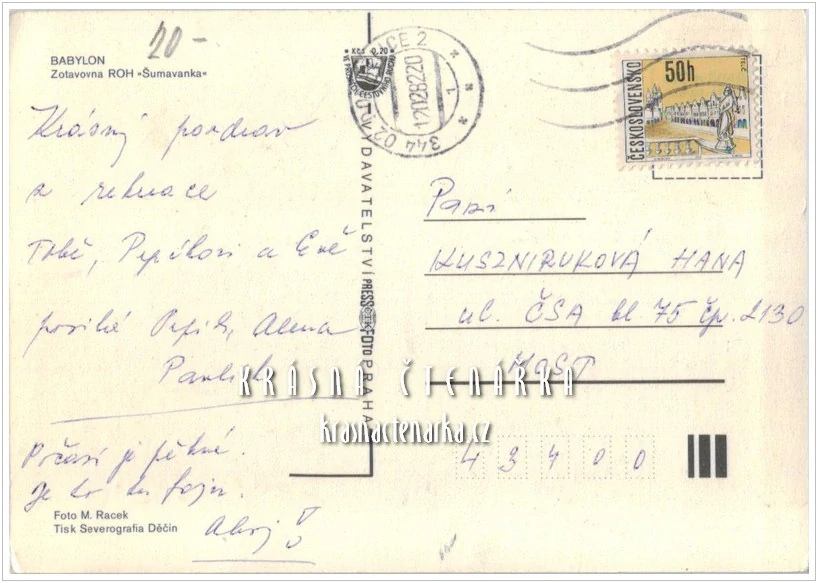 BABYLON
Zotavovna ROH »Šumavanka«
20-
Krásný pozdrav
z rekreace
Tobě, Pepíkovi a Evě
posílá Pepík, Alena
Pavlík
Počasí je pěkné.
Je to tu fajn.
Ahoj
Foto M. Racek
Tisk Severografia Děčín
VYDAVATELSTVÍ PRESSFOTO PRAHA
ČTK
Kčs 0,20
344 02
CE 2
ČESKOSLOVENSKO
50h
TELČ
Paní
KUSZNIRUKOVÁ HANA
ul. ČSA bl 75 čp. 2130
MOST
43400
KRÁSNÁ ČTENÁRKA
krasnactenarka.cz